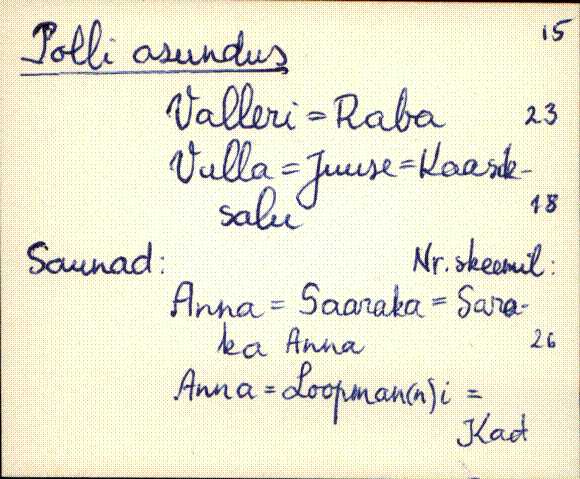 15
Polli asundus
Valleri = Raba 23
Vulla = Juuse = Kaasik-
salu 18
Saunad: Nr. skeemil:
Anna = Saaraka = Sara-
ka Anna 26
Anna = Loopman(n)i =
Kad